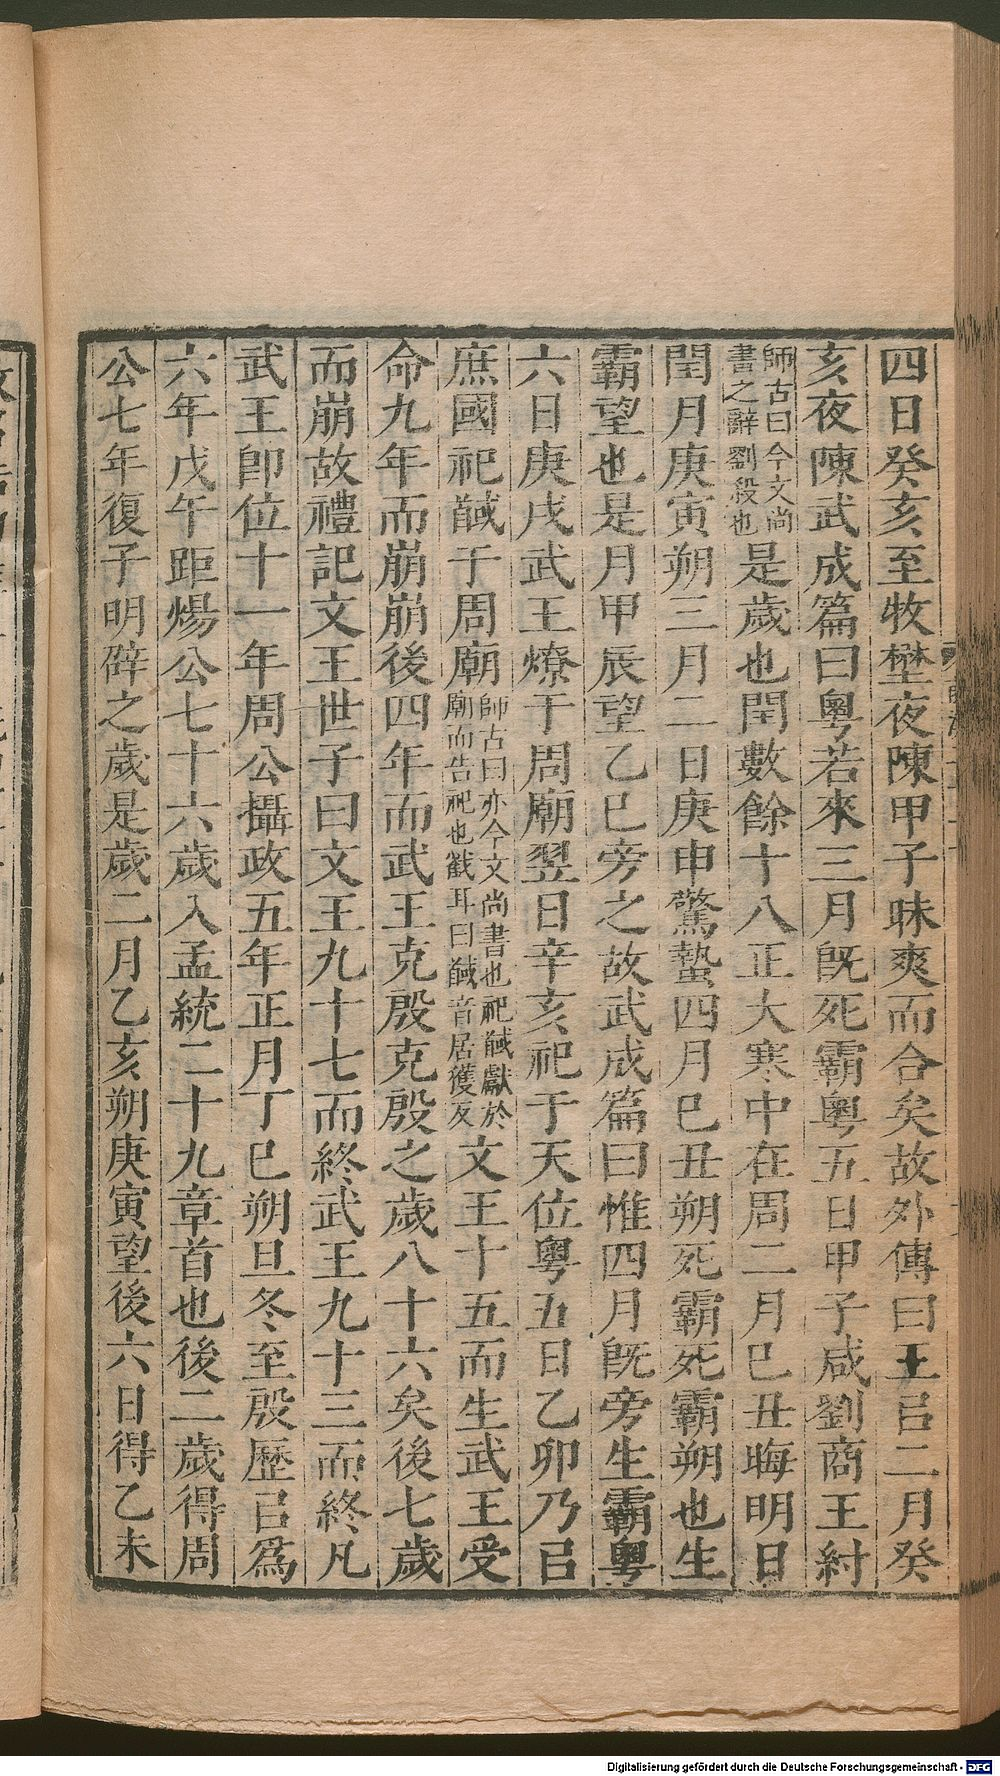 四日癸亥至牧壄夜陳甲子昧爽而合矣故外傳曰王㠯二月癸
亥夜陳武成篇曰粵若來三月旣死霸粵五日甲子咸劉商王紂
師古曰今文尚
書之辭劉殺也
是歲也閏數餘十八正大寒中在周二月己丑晦明日
閏月庚寅朔三月二日庚申驚蟄四月己丑朔死霸死霸朔也生
霸望也是月甲辰望乙巳旁之故武成篇曰惟四月旣旁生霸粵
六日庚戌武王燎于周廟翌日辛亥祀于天位粵五日乙卯乃㠯
庶國祀馘于周廟
師古曰亦今文尚書也祀馘獻於
廟而告祀也截耳曰馘音居獲反
文王十五而生武王受
命九年而崩崩後四年而武王克殷克殷之歲八十六矣後七歲
而崩故禮記文王世子曰文王九十七而終武王九十三而終凡
武王卽位十一年周公攝政五年正月丁巳朔旦冬至殷歷㠯爲
六年戊午距煬公七十六歲入孟統二十九章首也後二歲得周
公七年復子明辟之歲是歲二月乙亥朔庚寅望後六日得乙未
Digitalisierung gefördert durch die Deutsche Forschungsgemeinschaft - DFG